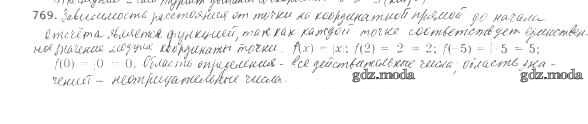 769. Зависимость расстояния от точки на координатной прямой до начала
отсчета является функцией, так как каждой точке соответствует единствен-
ное значение модуля координаты точки. f(x) = |x|; f(2) = 2 = 2; f(-5) = |-5 = 5;
f(0) = 0 = 0. Область определения - все действительные числа, область зна-
чений - неотрицательные числа.
gdz.moda
gdz.moda